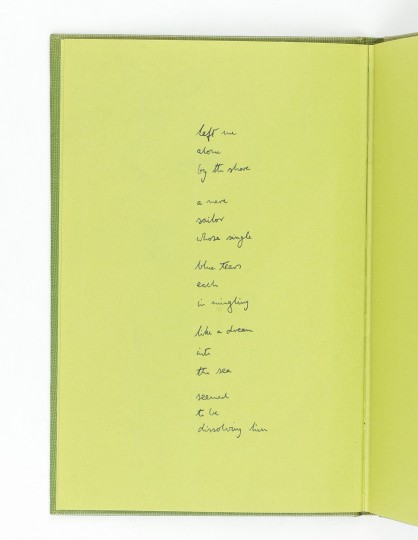 left me
alone
by the shore
a mere
sailor
whose single
blue tears
each
in mingling
like a dream
into
the sea
seemed
to be
dissolving him